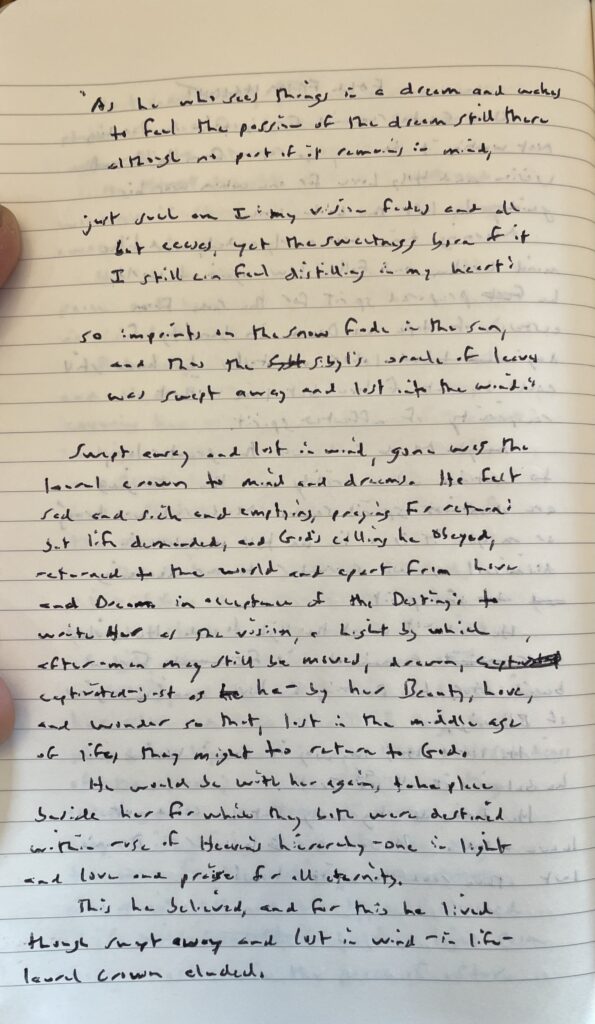 "As he who sees things in a dream and wakes
to feel the passion of the dream still there
although no part of it remains in mind,
just such am I: my vision fades and all
but ceases, yet the sweetness born of it
I still can feel distilling in my heart:
so imprints on the snow fade in the sun,
and thus the Sibyl's oracle of leaves
was swept away and lost into the wind."
Swept away and lost in wind, gone was the
laurel crown to mind and dreams. He felt
sad and sick and emptying, praying for return:
but life demanded, and God's calling he obeyed,
returned to the world and apart from Love
and Dream in acceptance of the Destiny: to
write Her as the vision, a Light by which
after-men may still be moved, drawn,
captivated—just as he—by her Beauty, Love,
and wonder so that, lost in the middle age
of life, they might too return to God.
He would be with her again, take place
beside her for which they both were destined
within rose of Heaven's hierarchy—one in light
and love and praise for all eternity.
This he believed, and for this he lived
though swept away and lost in wind—in life—
laurel crown eluded.